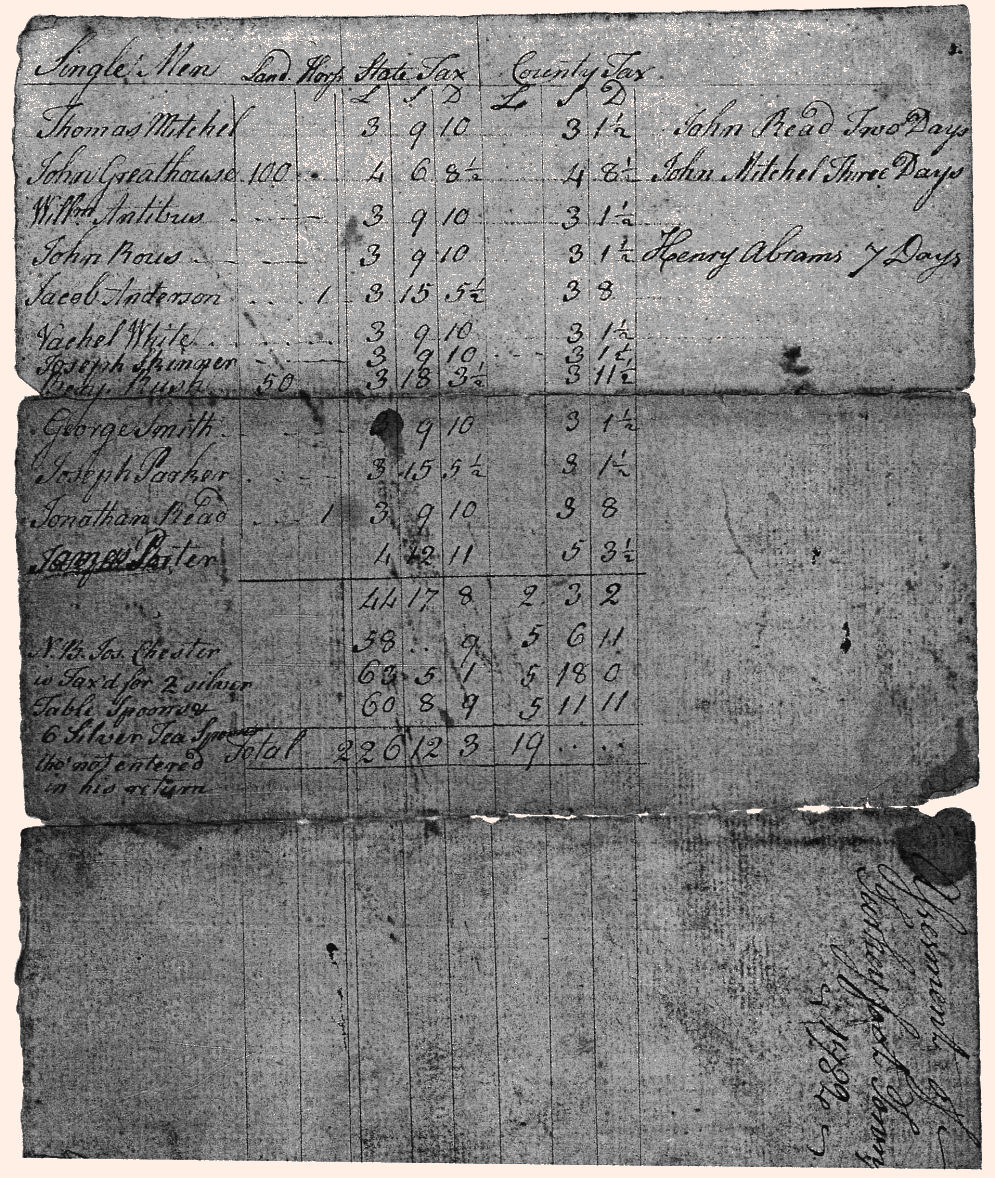 Single Men Land Horse State Tax County Tax
L S D L S D
Thomas Mitchel 3 9 10 3 1½ John Read Two Days
John Greathouse 100 4 6 8½ 4 8½ John Mitchel Three Days
Willm Antibus 3 9 10 3 1½
John Rous 3 9 10 3 1½ Henry Abrams 7 Days
Jacob Anderson 1 3 15 5½ 3 8
Vachel White 3 9 10 3 1½
Joseph Skinner 3 9 10 3 1½
Benj. Rush 50 3 18 3½ 3 11½
George Smith 9 10 3 1½
Joseph Parker 3 15 5½ 3 1½
Jonathan Read 1 3 9 10 3 8
James Porter 4 12 11 5 3½
44 17 8 2 3 2
58 .. 9 5 6 11
N.B. Jos. Chester
is Tax'd for 2 silver 63 5 1 5 18 0
Table Spoons & 60 8 9 5 11 11
6 Silver Tea Spoons
Total 226 12 3 19 .. ..
tho' not entered
in his return
Assesment of
1786